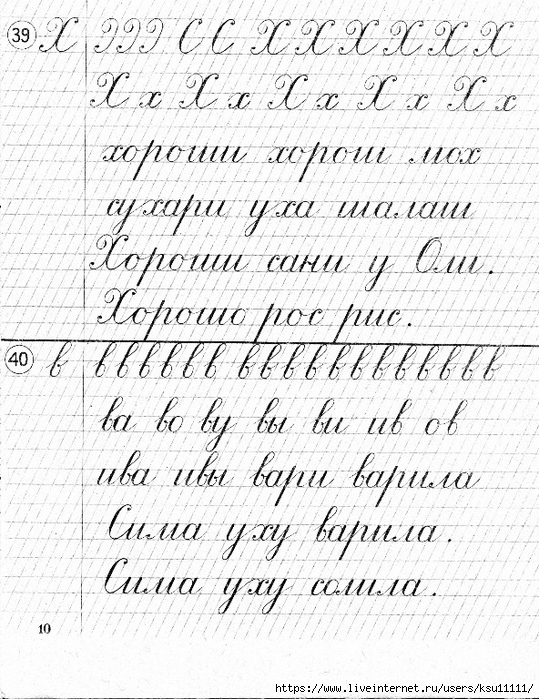 39 Х С С Х Х Х Х Х Х
Х х Х х Х х Х х Х х
хороши хорош мох
сухари уха шалаш
Хороши сани у Оли.
Хорошо рос рис.
40 в вввввв вввввввввввв
ва во ву вы ви ив ов
ива ивы вари варила
Сима уху варила.
Сима уху солила.
10
https://www.liveinternet.ru/users/ksu11111/